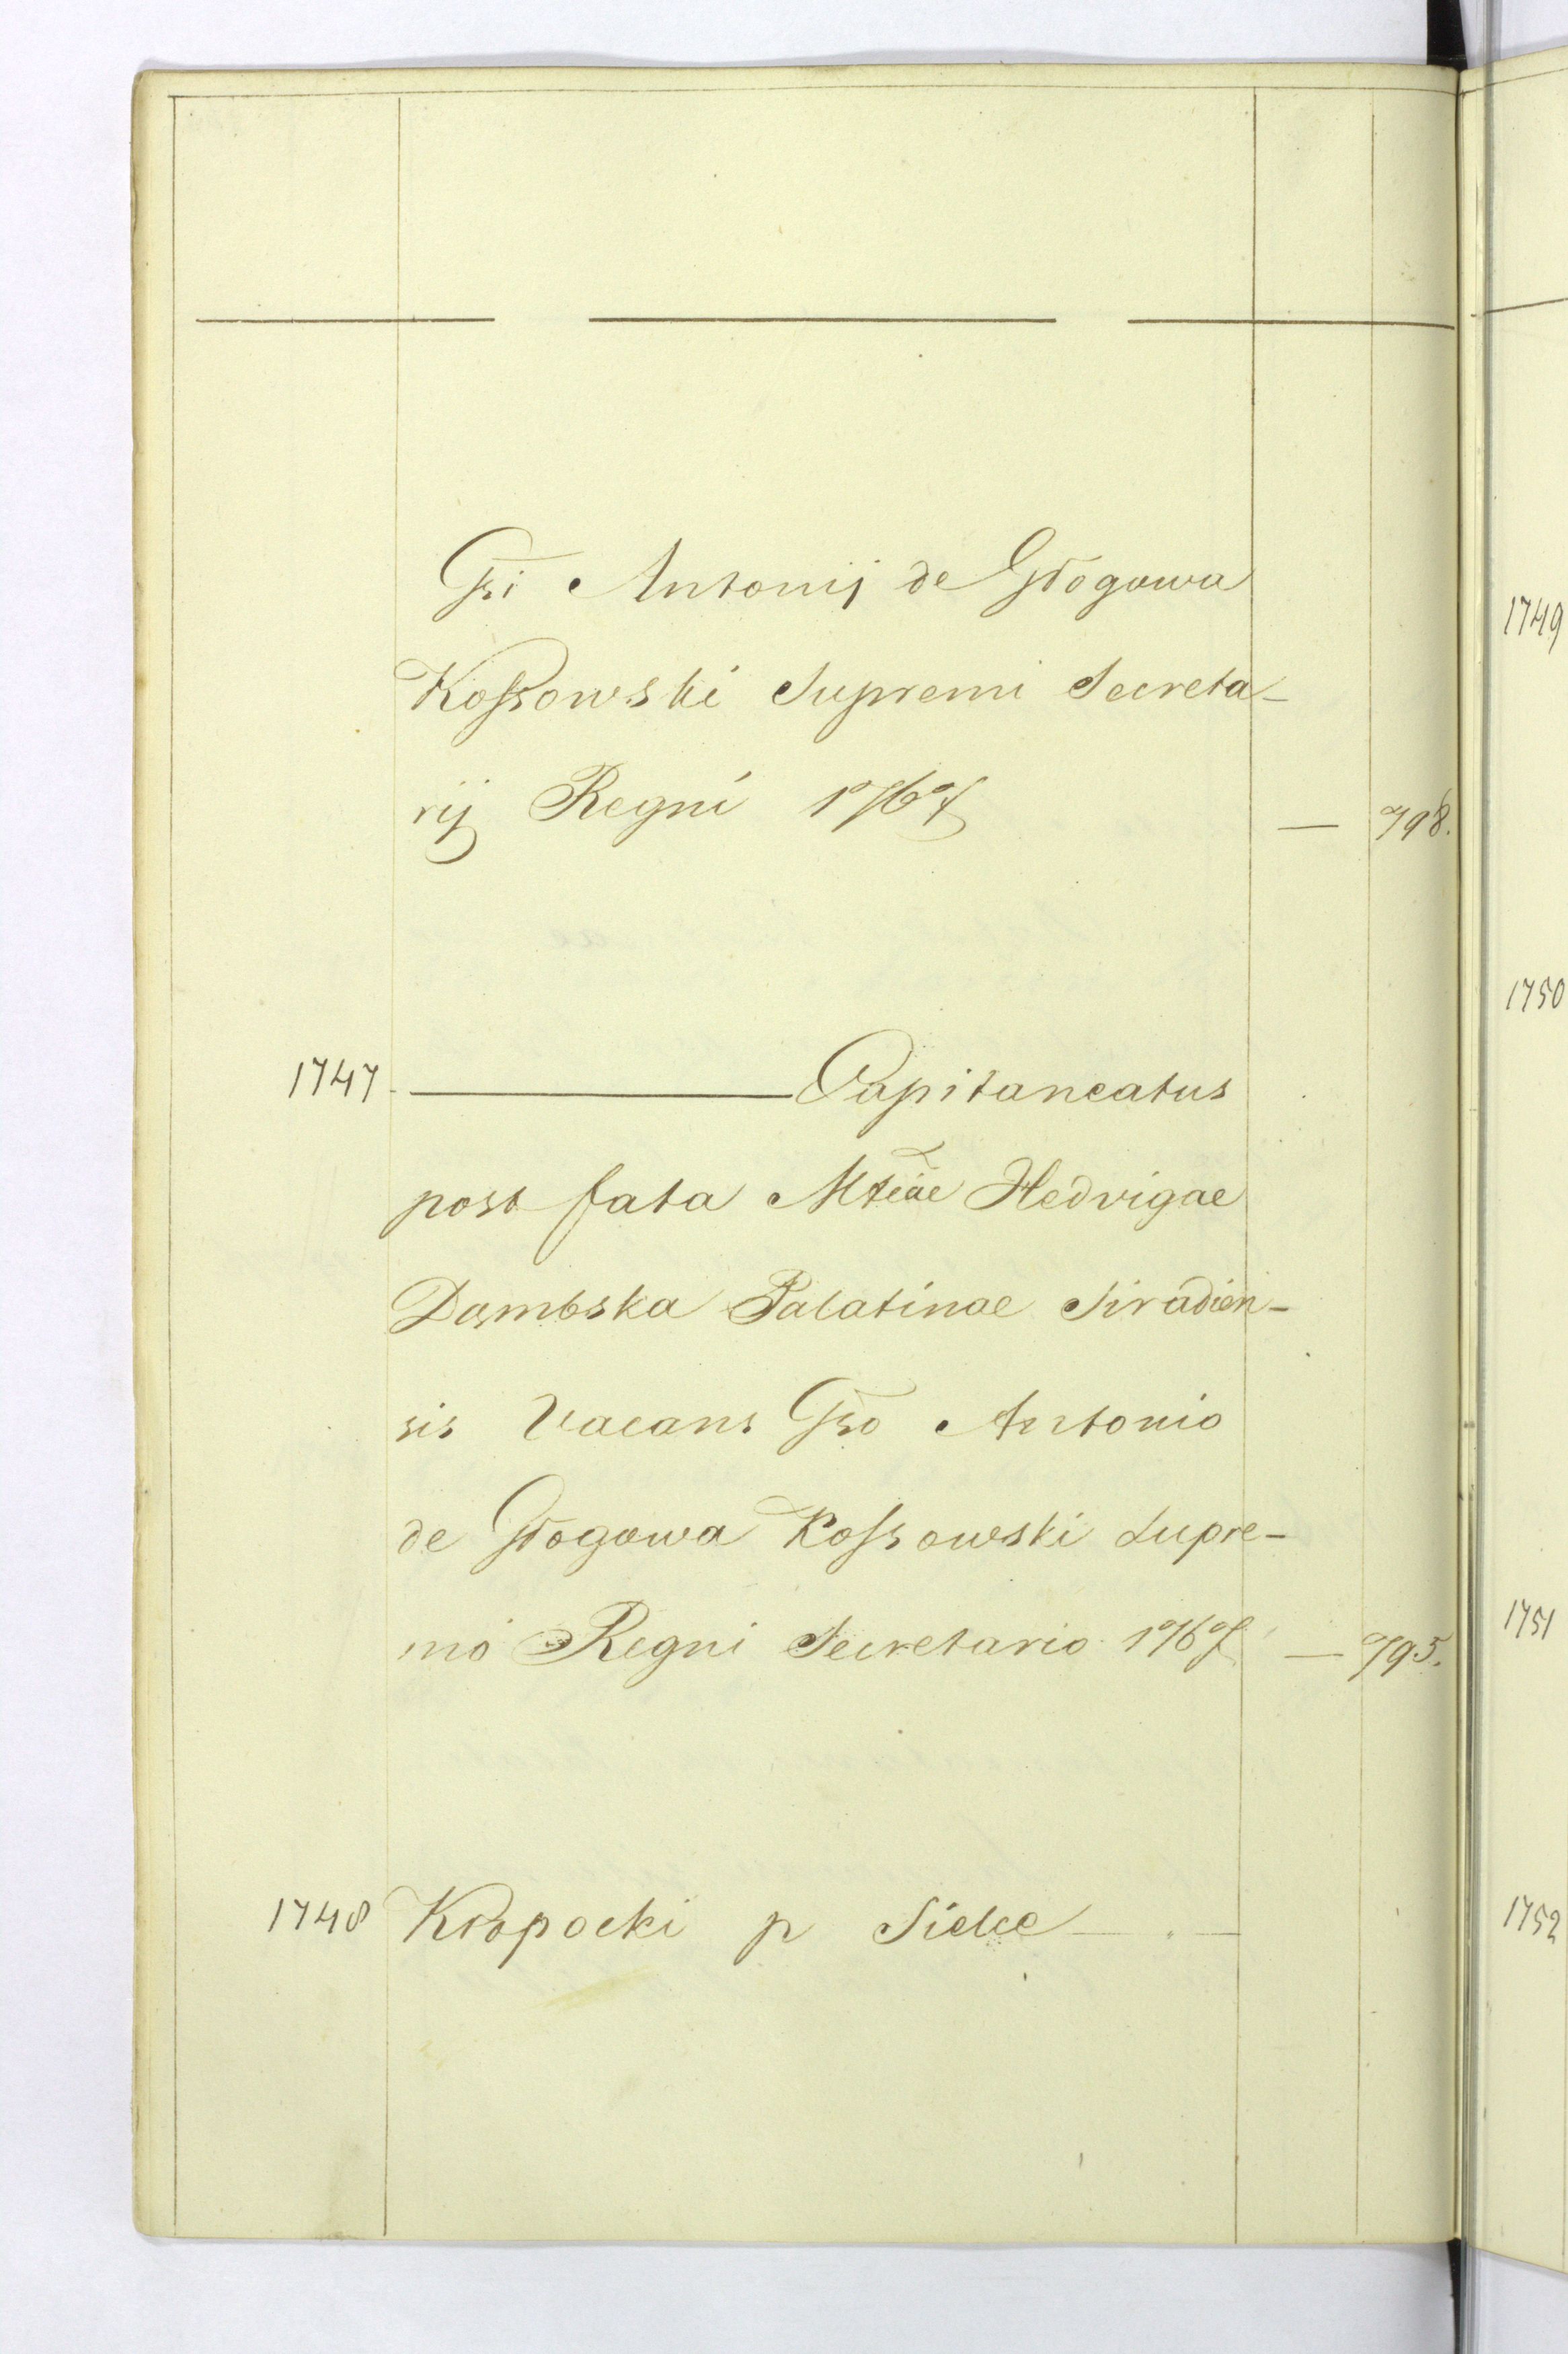 Gsi Antonij de Głogowa
Kossowski Supremi Secreta-
rij Regni 1767 — 798.
1747 — Capitaneatus
post fata Mtcae Hedvigae
Dąmbska Palatinae Siradien-
sis Vacans Gso Antonio
de Głogowa Kossowski Supre-
mo Regni Secretario 1767 — 795.
1748 Kłopocki p Sielce — . —
1749
1750
1751
1752